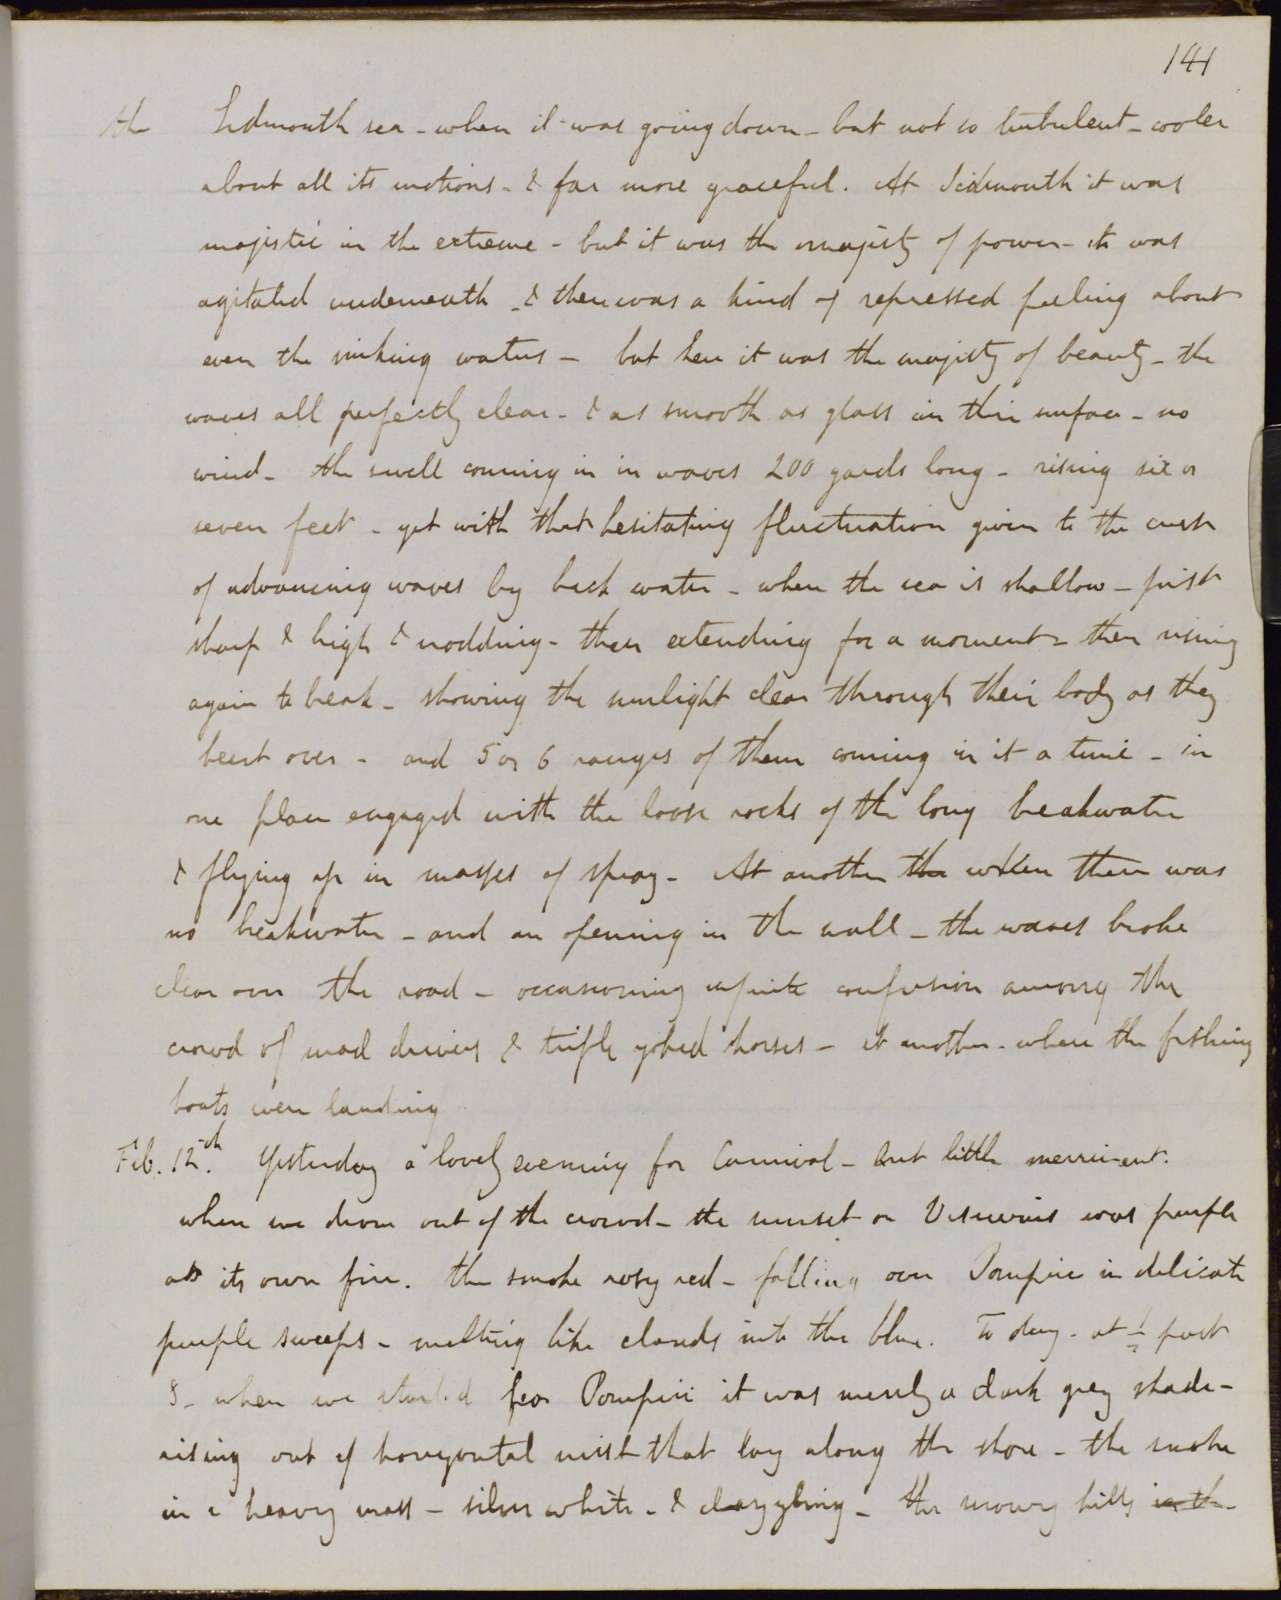 141
the Sidmouth sea - when it was going down - but not so turbulent - cooler
about all its motions - & far more graceful. At Sidmouth it was
majestic in the extreme - but it was the majesty of power - it was
agitated underneath - & there was a kind of repressed feeling about
even the sinking waters - but here it was the majesty of beauty - the
waves all perfectly clear - & as smooth as glass in their surface - no
wind - the swell coming in in waves 200 yards long - rising six or
seven feet - yet with that hesitating fluctuation given to the crest
of advancing waves by back water - when the sea is shallow - first
sharp & high & nodding - then extending for a moment - then rising
again to break - showing the sunlight clear through their body as they
bent over - and 5 or 6 ranges of them coming in at a time - in
one place engaged with the loose rocks of the long breakwater
& flying up in masses of spray - At another the where there was
no breakwater - and an opening in the wall - the waves broke
clear over the road - occasioning infinite confusion among the
crowd of mad drivers & triple yoked horses - at another - where the fishing
boats were landing
Feb. 12th. Yesterday a lovely evening for Carnival - but little merriment.
when we drove out of the crowd - the sunset on Vesuvius was purple
as its own fire. the smoke rosy red - falling over Pompeii in delicate
purple sweeps - melting like clouds into the blue. To day - at ½ past
8 - when we started for Pompeii it was merely a dark grey shade -
rising out of horizontal mist that lay along the shore - the smoke
in a heavy mass - silver white - & dazzling - the snowy hills in the